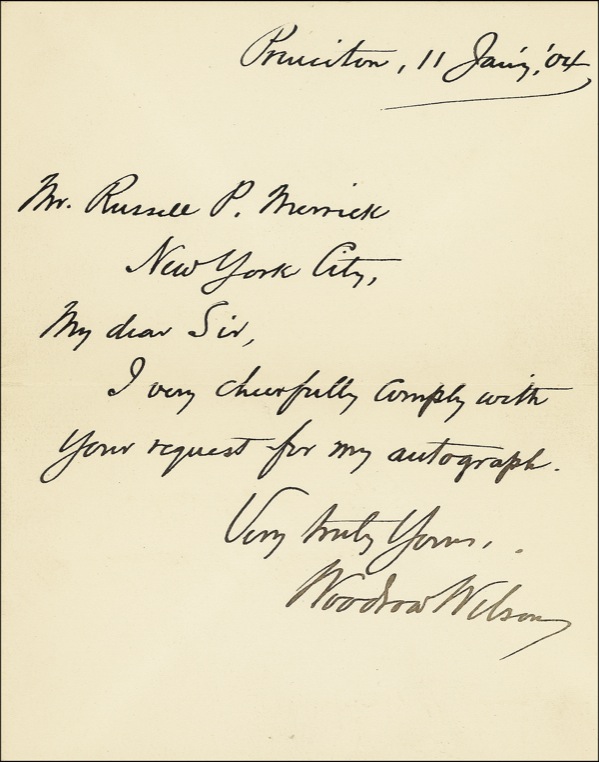 Princeton, 11 Jan'y, '04
Mr. Russell P. Merrick
New York City,
My dear Sir,
I very cheerfully comply with
your request for my autograph.
Very truly Yours,
Woodrow Wilson